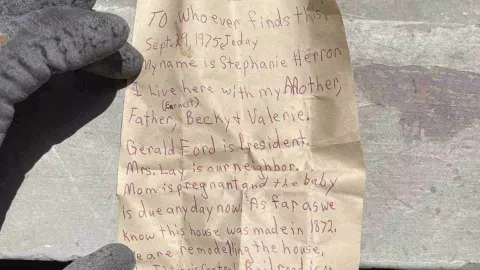 To whoever finds this,
Sept. 29, 1975, Today
My name is Stephanie Herron
I Live here with my Mother,
(Earnest)
Father, Becky & Valerie.
Gerald Ford is President.
Mrs. Lay is our neighbor.
Mom is pregnant and the baby
is due any day now. As far as we
know this house was made in 1872.
We are remodelling the house.
Illinois Central Railroad is on